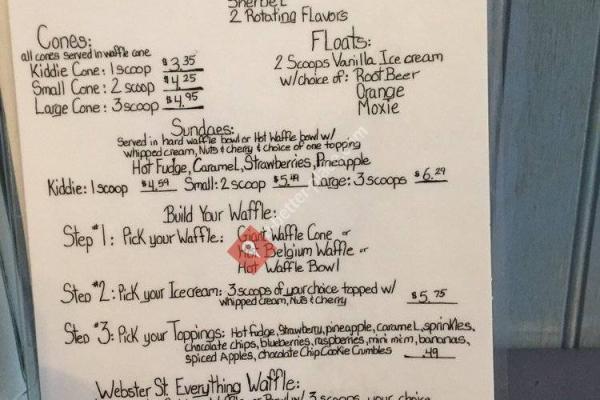 Sherbet
2 Rotating Flavors
Cones:
all cones served in waffle cone
Kiddie Cone: 1 scoop $3.35
Small Cone: 2 scoop $4.25
Large Cone: 3 scoop $4.95
Floats:
2 Scoops Vanilla Ice cream
w/choice of: Root Beer
Orange
Moxie
Sundaes:
Served in hard waffle bowl or Hot Waffle bowl w/
whipped cream, Nuts & Cherry & choice of one topping
Hot Fudge, Caramel, Strawberries, Pineapple
Kiddie: 1 scoop $4.59 Small: 2 scoop $5.49 Large: 3 scoops $6.29
Build Your Waffle:
Step #1: Pick your Waffle: Giant Waffle Cone or
Hot Belgium Waffle or
Hot Waffle Bowl
Step #2: Pick your Ice cream: 3 scoops of your choice topped w/
whipped cream, Nuts & Cherry $5.75
Step #3: Pick your Toppings: Hot Fudge, Strawberry, pineapple, caramel, sprinkles,
chocolate chips, blueberries, raspberries, mini m:m, bananas,
spiced Apples, chocolate Chip Cookie Crumbles .49
Webster St. Everything Waffle:
w/ 3 scoops your choice